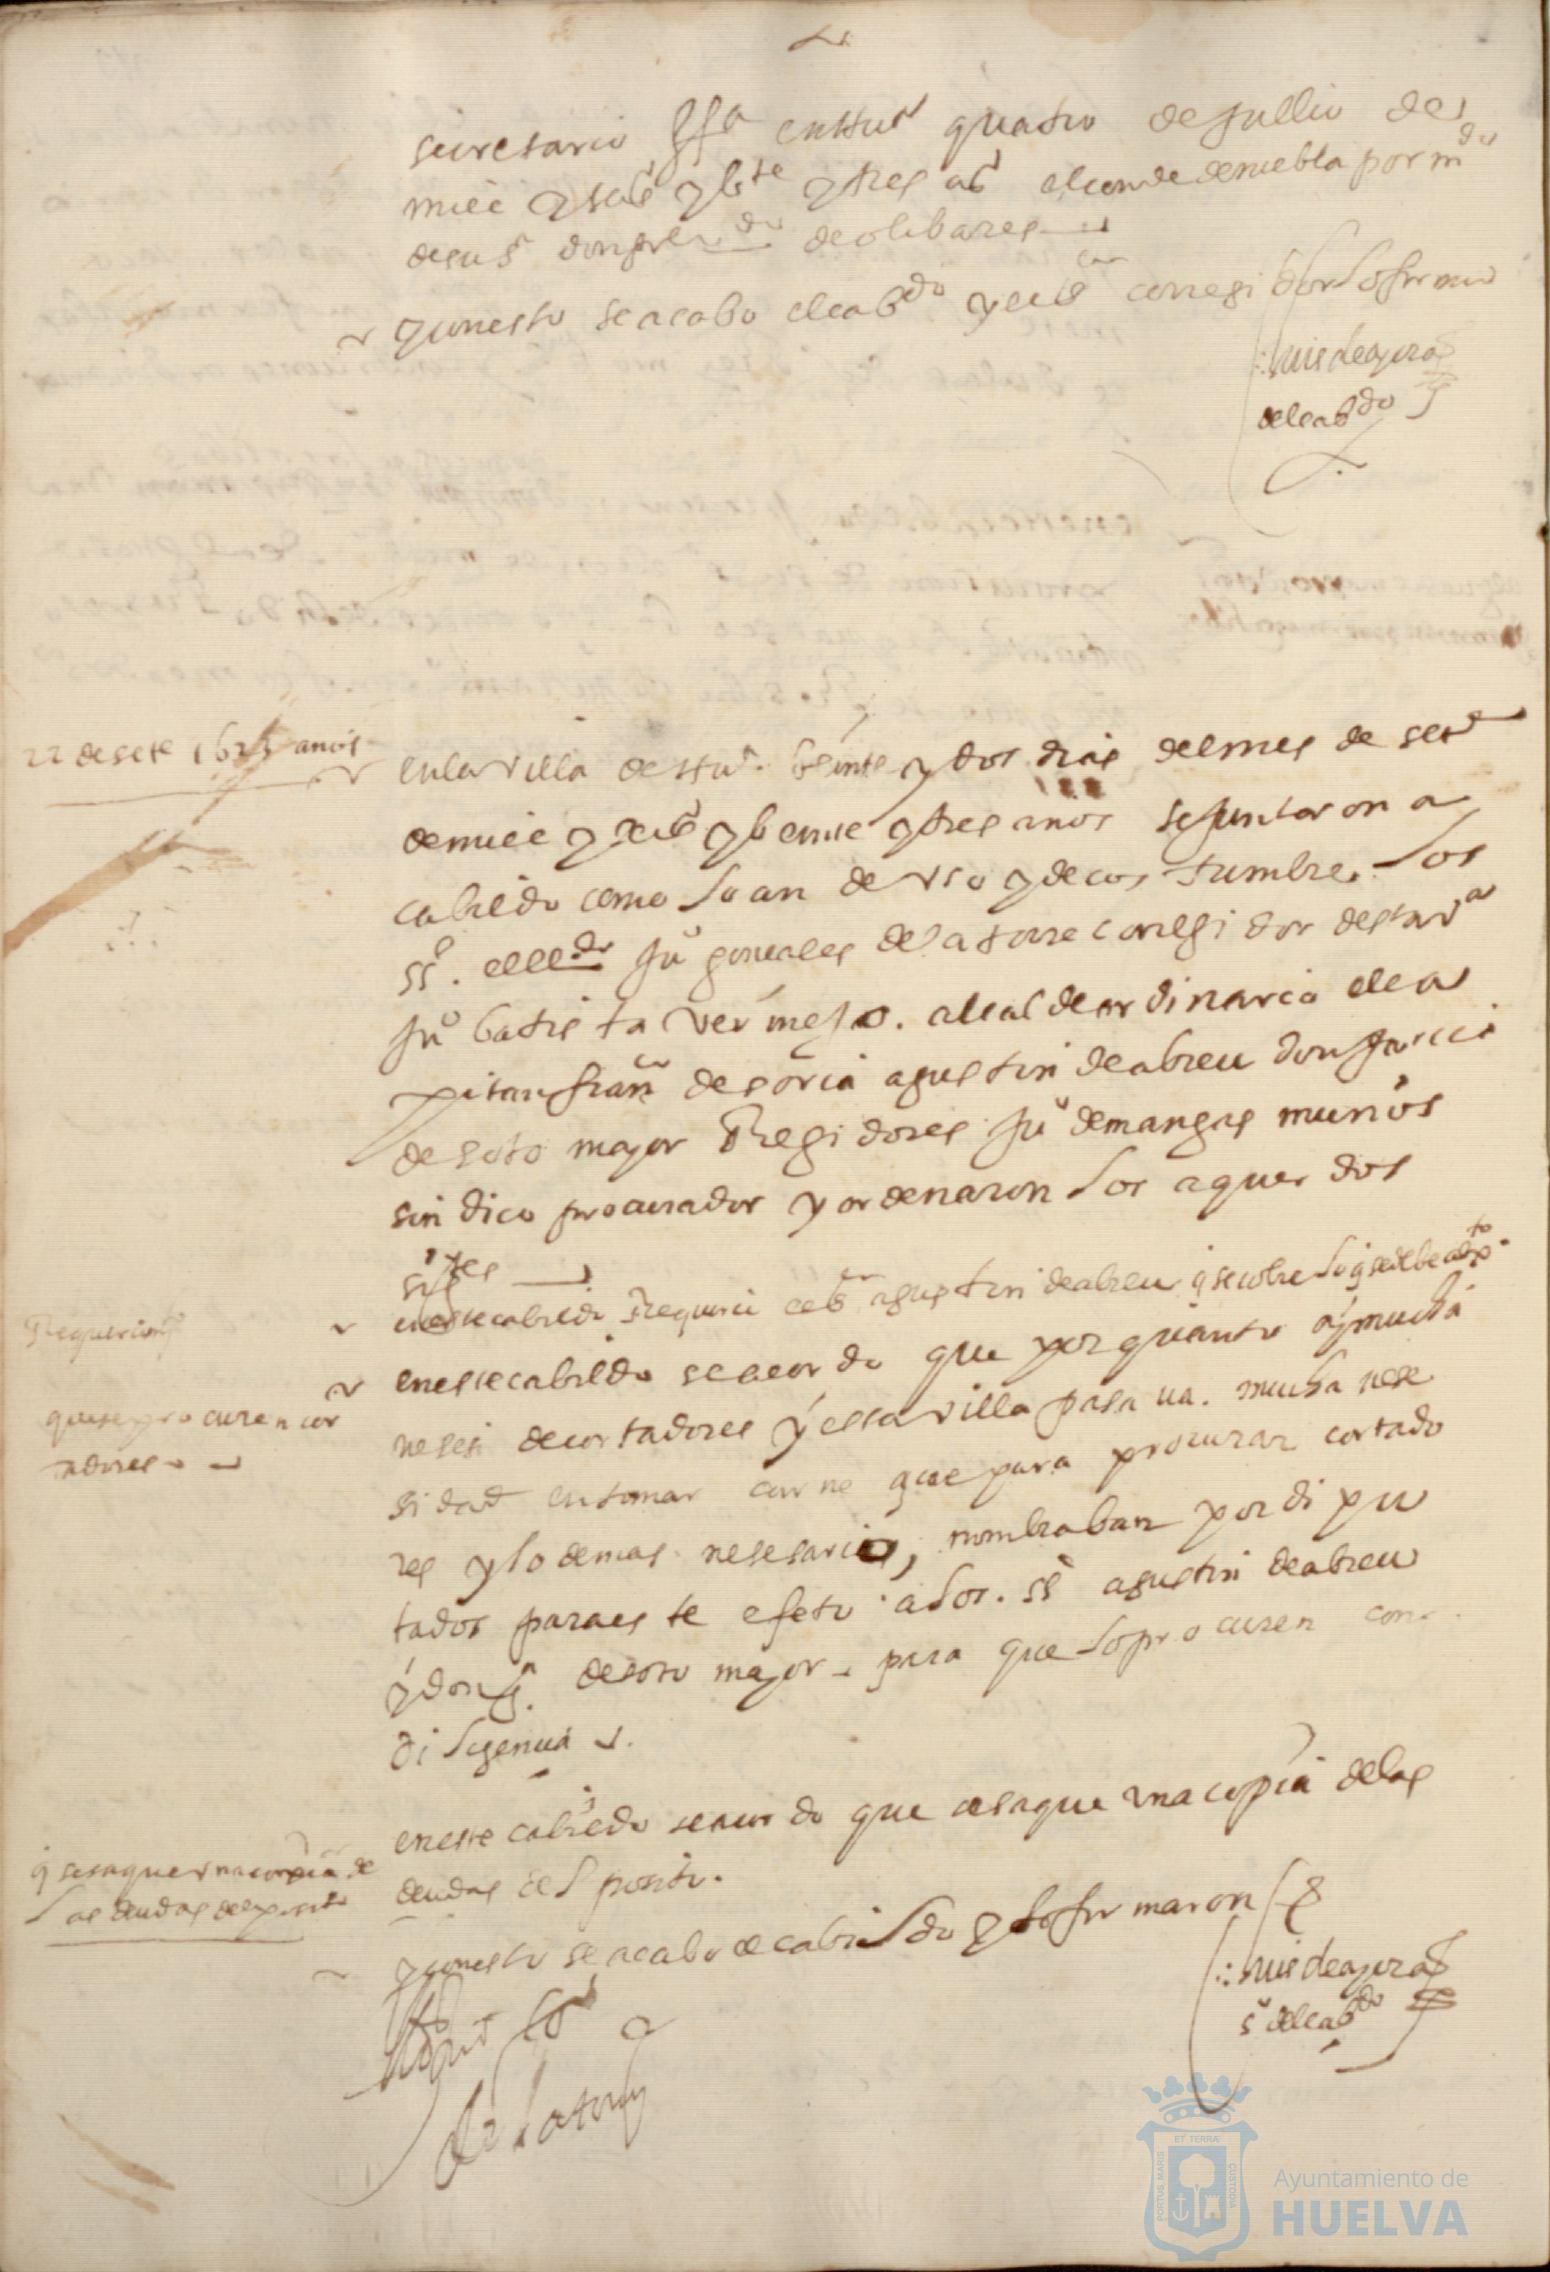 secretario ffa en Huа quatro de Jullio de
mill y seisº y bte y tres aºs el conde de niebla por mdo
de su sª don de olibares
y con esto se acabo el cabdo y el sor corregidor lo firmo
luis de ayora
del cabdo
22 de sete 1623 anos
en la villa de Huª beinte y dos dias del mes de sete
de mill y seisº y beinte y tres anos se juntaron a
cabildo como lo an de uso y de costumbre los
ss. el lldo Juº gonsales de la torre corregidor desta vª
Juº batista vermejo alcalde ordinario el ca
pitan franco de soria agustin de abreu don garcia
de soto mayor Regidores Juº de mangas munos
sindico procurador y ordenaron los aquerdos
sigtes
Requerimto
en este cabildo Requirio el sor agustin de abreu q se cobre lo q se debe al pto
que se procuren cor
tadores
en este cabildo se acordo que por quanto ay mucha
nesesi de cortadores y esta villa pasa va mucha nese
sidad en tomar carne que para procurar cortado
res y lo demas nesesario, nombraban por dipu
tados para este efeto a los ss agustin de abreu
y don gª de soto mayor para que lo procuren con
diligencia
q se saque una copia de
las deudas del posito
en este cabildo se acordo que se saque una copia de las
deudas del posito
y con esto se acabo el cabildo y lo firmaron
luis de ayora
sº del cabdo
de la torre
PORTUS MARIS ET TERRA CUSTODIA
Ayuntamiento de
HUELVA